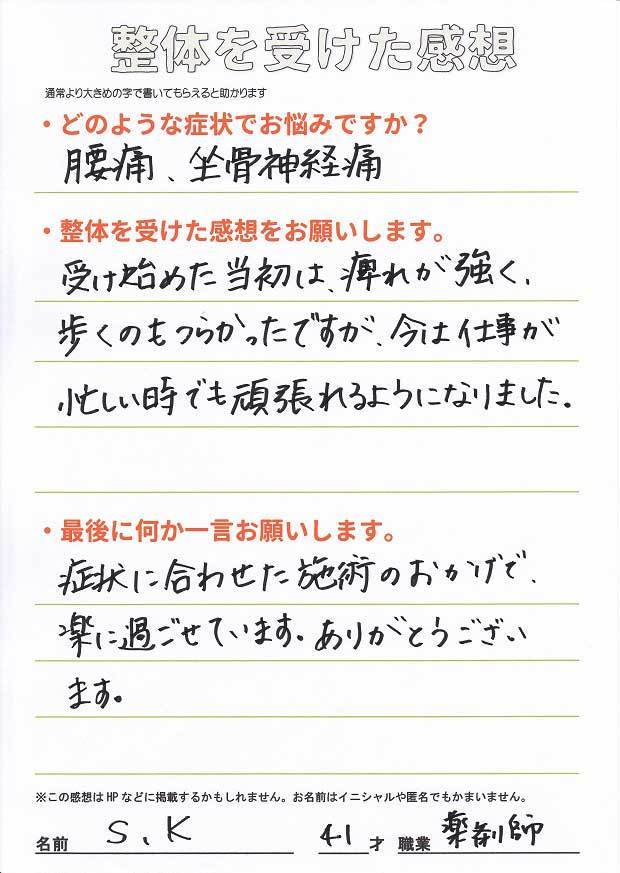 整体を受けた感想
通常より大きめの字で書いてもらえると助かります
・どのような症状でお悩みですか？
腰痛、坐骨神経痛
・整体を受けた感想をお願いします。
受け始めた当初は、痺れが強く、
歩くのもつらかったですが、今は仕事が
忙しい時でも頑張れるようになりました。
・最後に何か一言お願いします。
症状に合わせた施術のおかげで、
楽に過ごせています。ありがとうござい
ます。
※この感想はHPなどに掲載するかもしれません。お名前はイニシャルや匿名でもかまいません。
名前 S、K 41才 職業 薬剤師